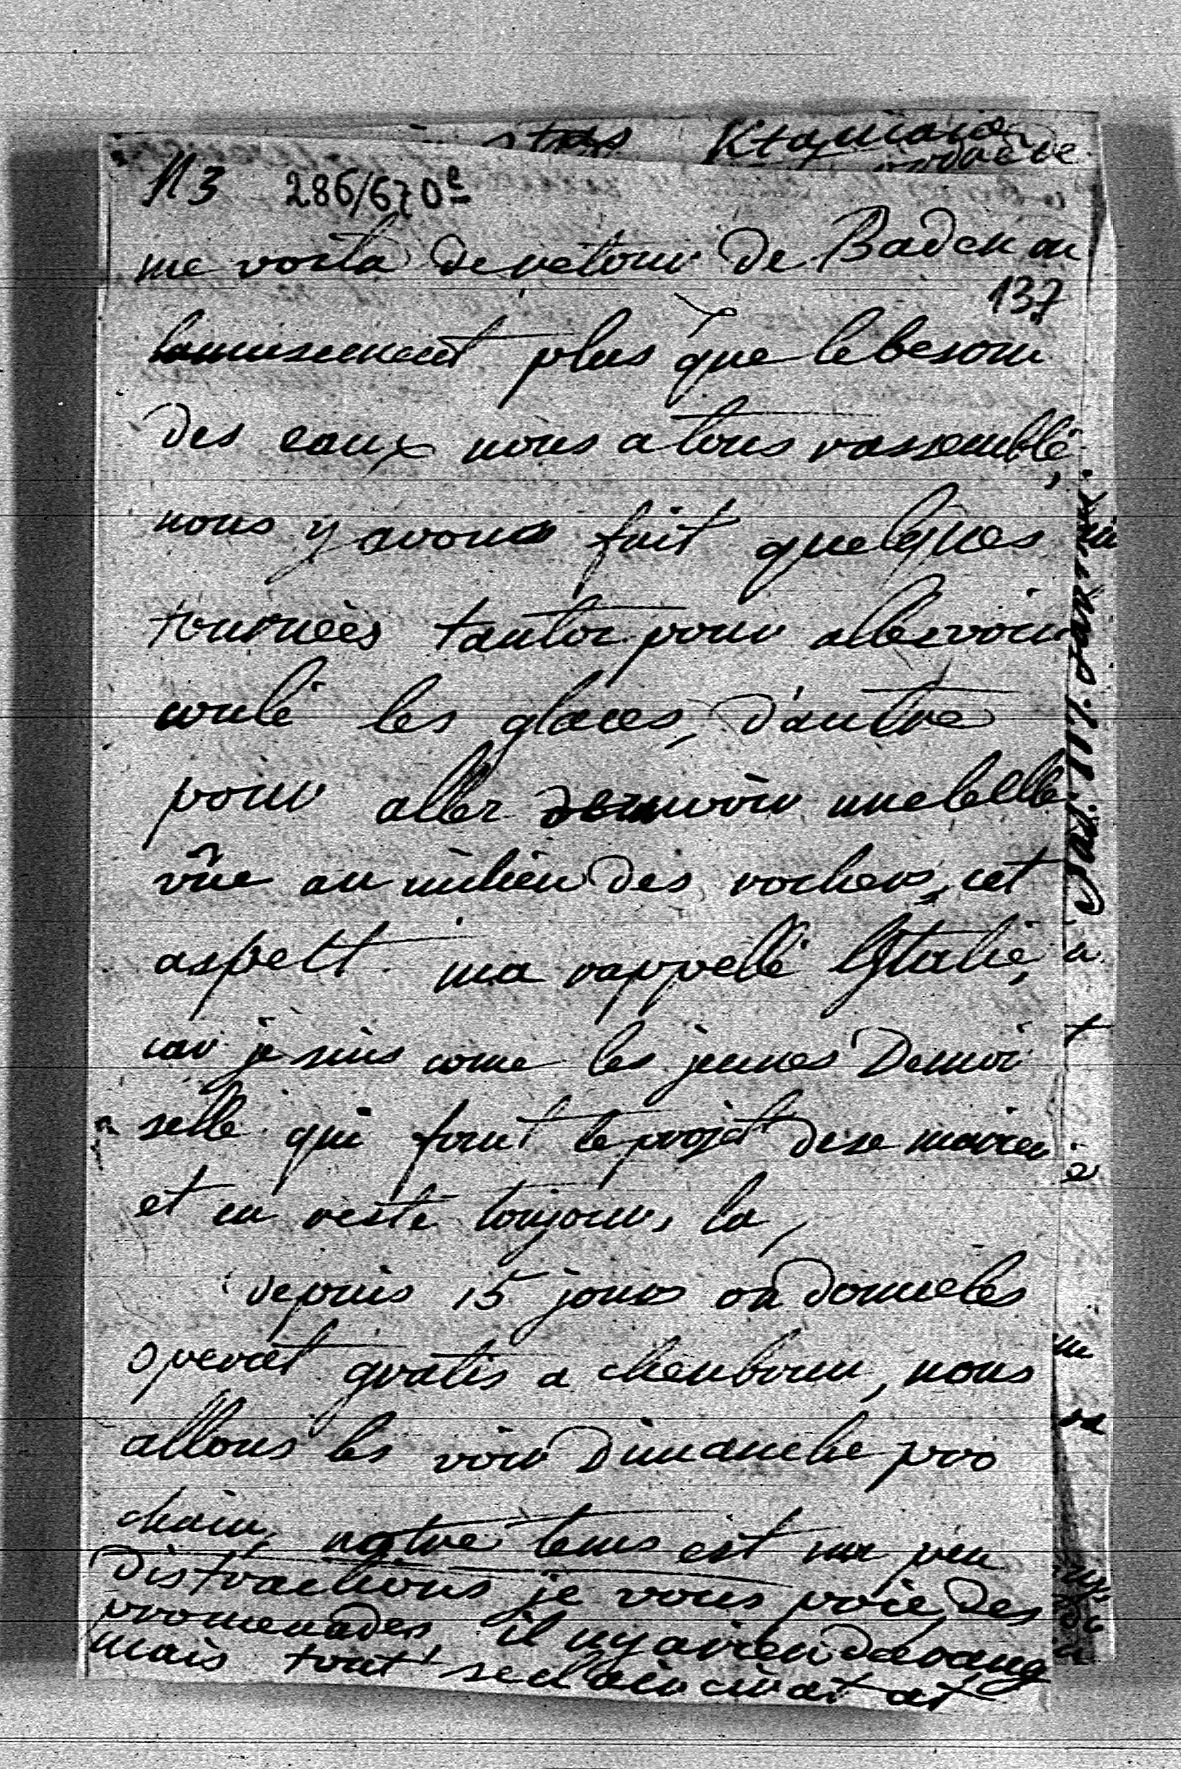 N 3 286/670e
me voila de retour de Baden ou
137
lamusement plus que le besoin
des eaux nous a tous rassemblé,
nous y avons fait quelques
tournèès tantot pour aller voir
coulé les glaces, d'autre
pour aller voir une belle
vûe au milieu des rochers, cet
aspect ma rappellé lItalie,
car je suis come les jeunes Demoi
selle qui font le projet de se marier
et en reste toujours la,
depuis 15 jours on donne les
operat gratis a chenbrun, nous
allons les voir Dimanche pro
chain, notre tems est un peu
distractions je vous prie, des
promenades il ny a rien
mais tout at